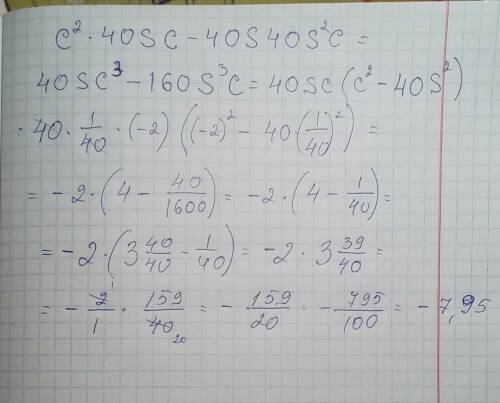 c² · 40SC - 40S 40S²C =
40SC³ - 160S³C = 40SC (c² - 40S²)
· 40 · 1/40 · (-2) ((-2)² - 40 · (1/40)²) =
= -2 · (4 - 40/1600) = -2 · (4 - 1/40) =
= -2 · (3 40/40 - 1/40) = -2 · 3 39/40 =
= - 2/1 · 159/40 = - 159/20 = - 795/100 = - 7,95